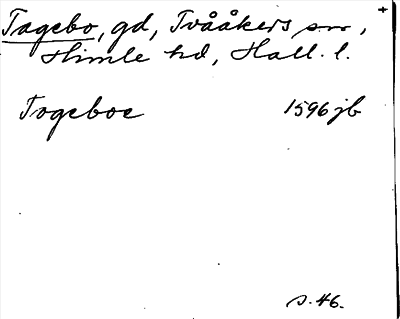 Tagebo, gd, Tvååkers sn,
Himle hd, Hall. l.
Togeboe 1596 jb
s. 46.